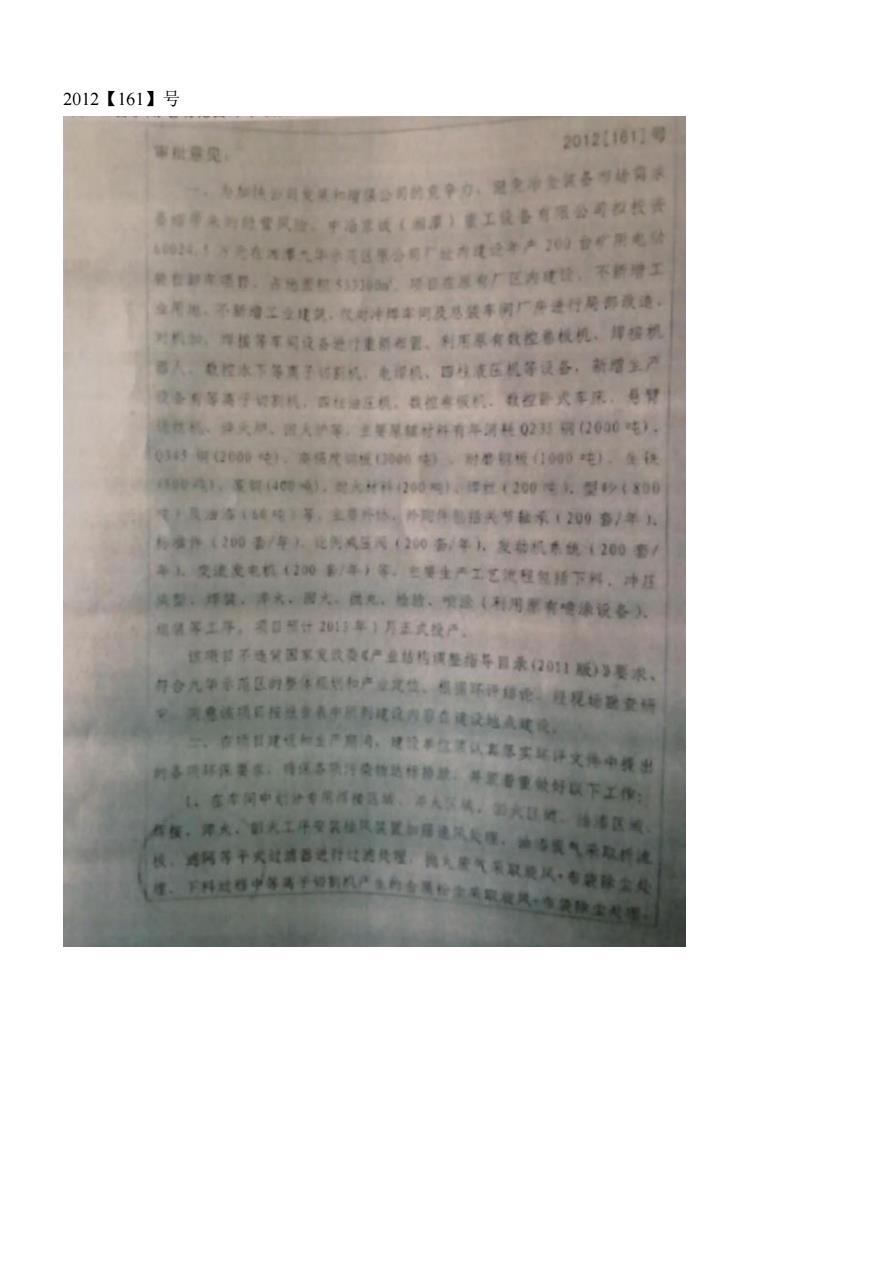 2012【161】号
2012[161]号
审批意见：
一、为加快公司发展和增强公司的竞争力、避免冶金装备市场需求
萎缩带来的经营风险，中冶京诚（湘潭）重工设备有限公司拟投资
60024.5万元在湘潭九华示范区原公司厂址内建设年产200台矿用电动
轮自卸车项目，占地面积533300㎡。项目在原有厂区内建设，不新增工
业用地，不新增工业建筑，仅对冲焊车间及总装车间厂房进行局部改造，
对机加、焊接等车间设备进行重新布置、利用原有数控卷板机、焊接机
器人、数控水下等离子切割机、电焊机、四柱液压机等设备，新增生产
设备有等离子切割机、四柱油压机、数控卷板机、数控卧式车床、悬臂
机、淬火炉、回火炉等，主要原辅材料有年消耗Q235钢(2000吨)、
Q345钢(2000吨)、高强度钢板(3000吨)、耐磨钢板(1000吨)、生铁
(800吨)、废钢(400吨)、耐火材料(200吨)、焊丝(200吨)、型砂(800
吨)及油漆(60吨)等，主要外协、外购件包括关节轴承(200套/年)、
标准件(200套/年)、比例减压阀(200套/年)、发动机系统(200套/
年)、交流发电机(200套/年)等，主要生产工艺流程包括下料、冲压
成型、焊装、淬火、回火、抛丸、检验、喷涂(利用原有喷涂设备)、
组装等工序。项目预计2013年1月正式投产。
该项目不违背国家发改委《产业结构调整指导目录(2011版)》要求、
符合九华示范区的整体规划和产业定位。根据环评结论，经现场踏查研
究，同意该项目按报告表中所列建设内容在建设地点建设。
二、在项目建设和生产期间，建设单位须认真落实环评文件中提出
的各项环保要求，确保各项污染物达标排放，并要着重做好以下工作：
1、在车间中划分专用焊接区域、淬火区域、回火区域、油漆区域，
焊接、淬火、回火工序安装抽风装置加强通风处理，油漆废气采取折流
板、滤网等干式过滤器进行过滤处理，抛丸废气采取旋风+布袋除尘处
理，下料过程中等离子切割机产生的金属粉尘采取旋风+布袋除尘处理。